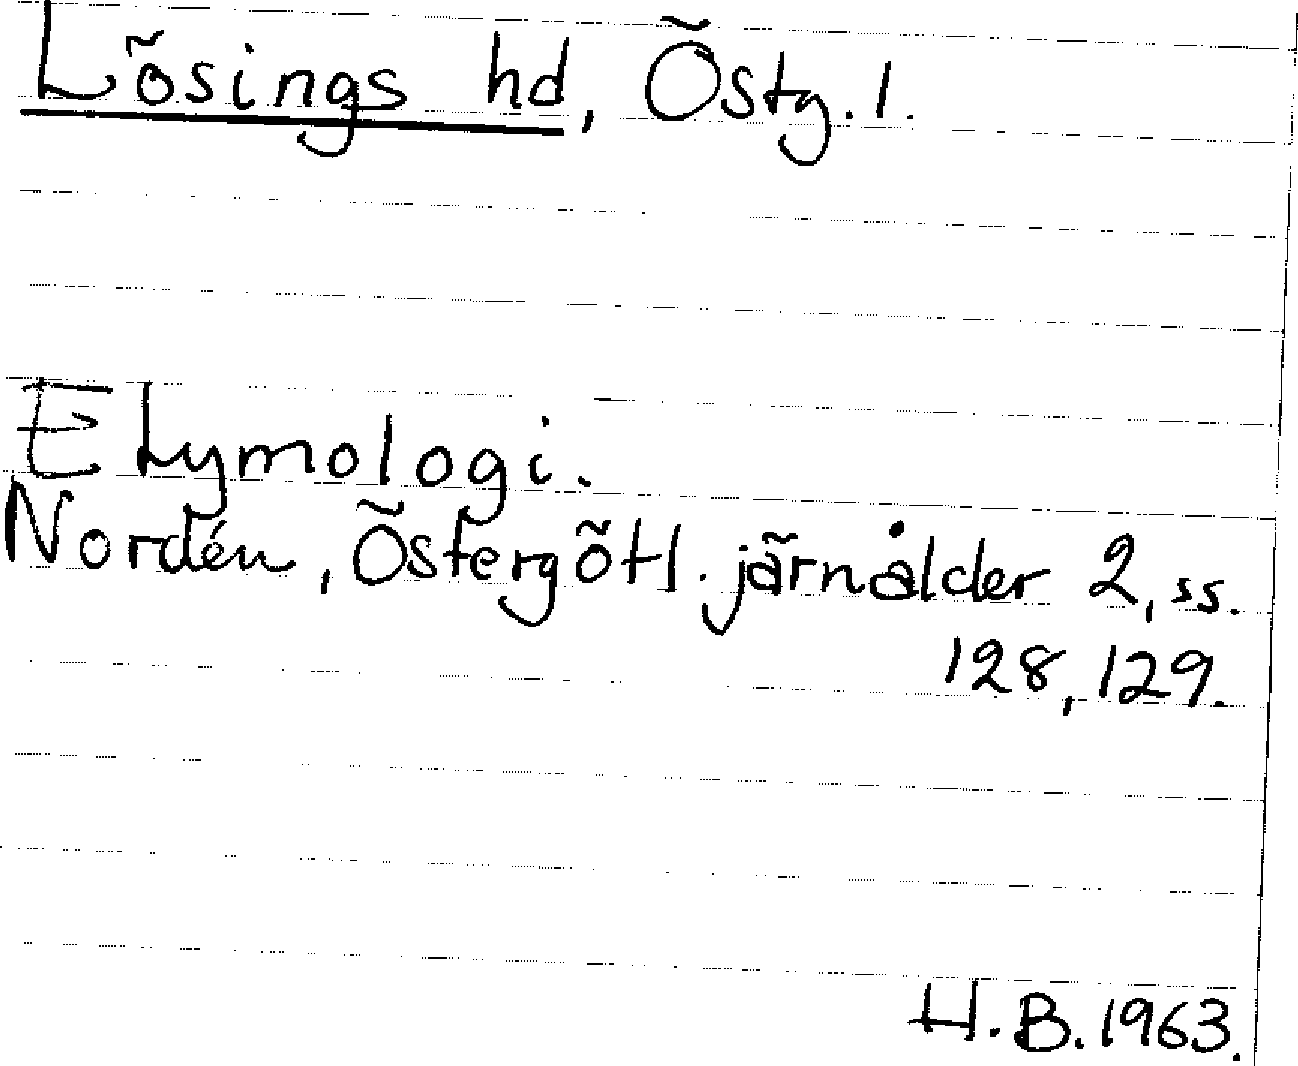 Lösings hd, Östg. l.
Etymologi.
Nordén, Östergötl. järnålder 2, ss.
128, 129.
H.B. 1963.